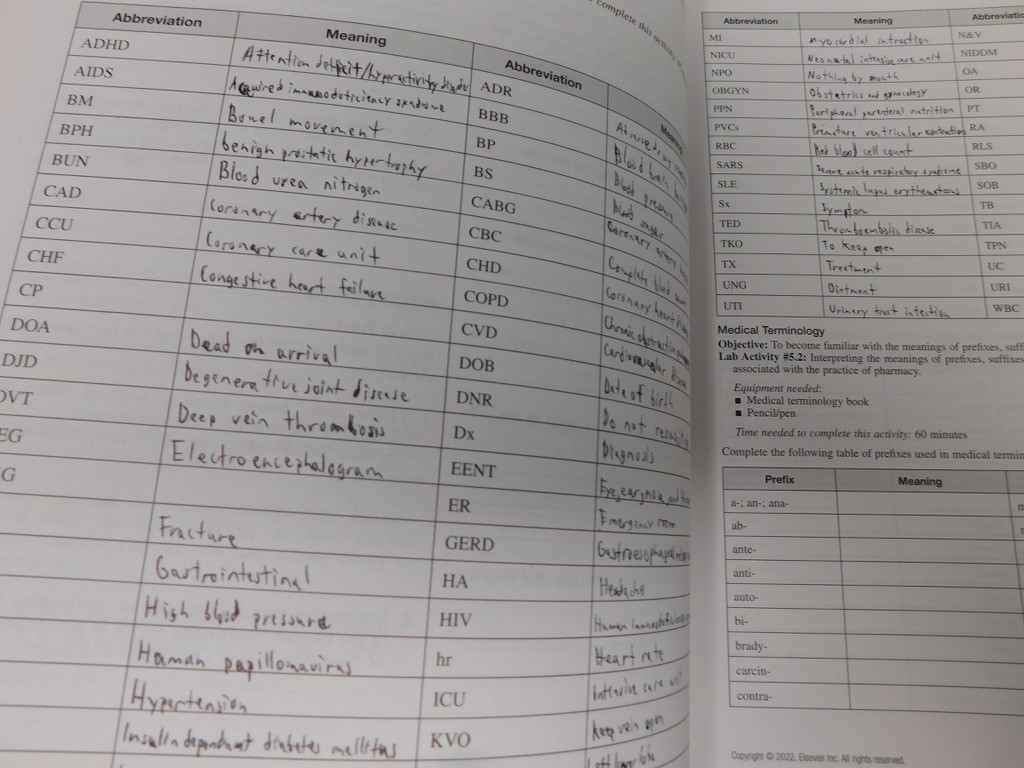 complete this activity
Abbreviation Meaning Abbreviation
ADHD Attention defecit/hyperactivity ADR Adverse drug
AIDS Acquired immunodeficiency syndrome BBB Blood brain
BM Bowel movement BP Blood pressure
BPH benign prostatic hypertrophy BS Blood sugar
BUN Blood urea nitrogen CABG Coronary artery
CAD Coronary artery disease CBC Complete blood
CCU Coronary care unit CHD Coronary heart
CHF Congestive heart failure COPD Chronic obstructive
CP CVD Cardiovascular disease
DOA Dead on arrival DOB Date of birth
DJD Degenerative joint disease DNR Do not
DVT Deep vein thrombosis Dx Diagnosis
EG Electroencephalogram EENT Eye, ear, nose, and
G ER Emergency room
Fracture GERD
Gastrointestinal HA Headache
High blood pressure HIV Human
Human papillomavirus hr Heart rate
Hypertension ICU Intensive care unit
Insulin dependant diabetes mellitus KVO Keep vein open
Left lower
Abbreviation Meaning Abbreviation
MI myocardial N&V
NICU Neonatal intensive care unit NIDDM
NPO Nothing by mouth OA
OBGYN Obstetrics and gynecology OR
PPN Peripheral parenteral nutrition PT
PVCs Premature ventricular contractions RA
RBC Red blood cell count RLS
SARS Severe acute respiratory syndrome SBO
SLE Systemic lupus SOB
Sx Symptom TB
TED Thromboembolic disease TIA
TKO To keep open TPN
TX Treatment UC
UNG Ointment URI
UTI Urinary tract infection WBC
Medical Terminology
Objective: To become familiar with the meanings of prefixes,
Lab Activity #5.2: Interpreting the meanings of prefixes, suffixes
associated with the practice of pharmacy.
Equipment needed:
■ Medical terminology book
■ Pencil/pen
Time needed to complete this activity: 60 minutes
Complete the following table of prefixes used in medical
Prefix Meaning
a-; an-; ana-
ab-
ante-
anti-
auto-
bi-
brady-
carcin-
contra-
Copyright © 2022, Elsevier Inc. All rights reserved.